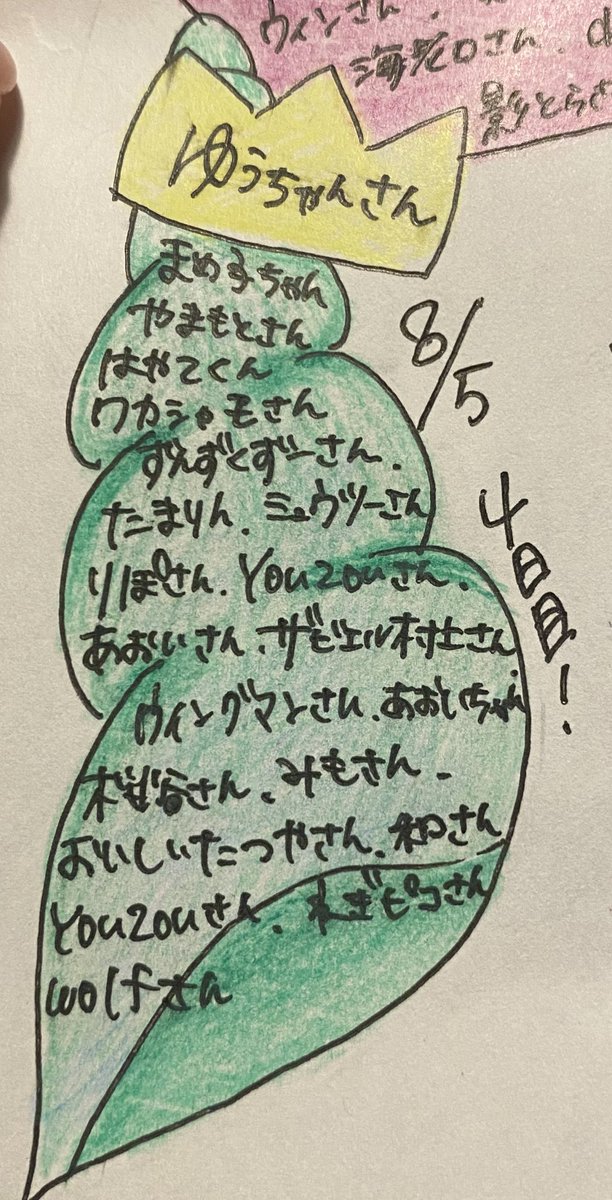 ウィンさん、
さん、
影とらさ
ゆうちゃんさん
まめ子ちゃん
やまもとさん
はやてくん
ワカシャモさん
ずんずくずーさん、
たまりん、ミュウツーさん
りぽさん、You2ouさん、
あおいさん、ザビエル村土さん、
ウィングマンさん、あおいちゃん
桜谷さん、みもさん、
おいしいたつやさん、和さん
You2ouさん、ねぎピコさん
wolfさん
8/5
4日目!